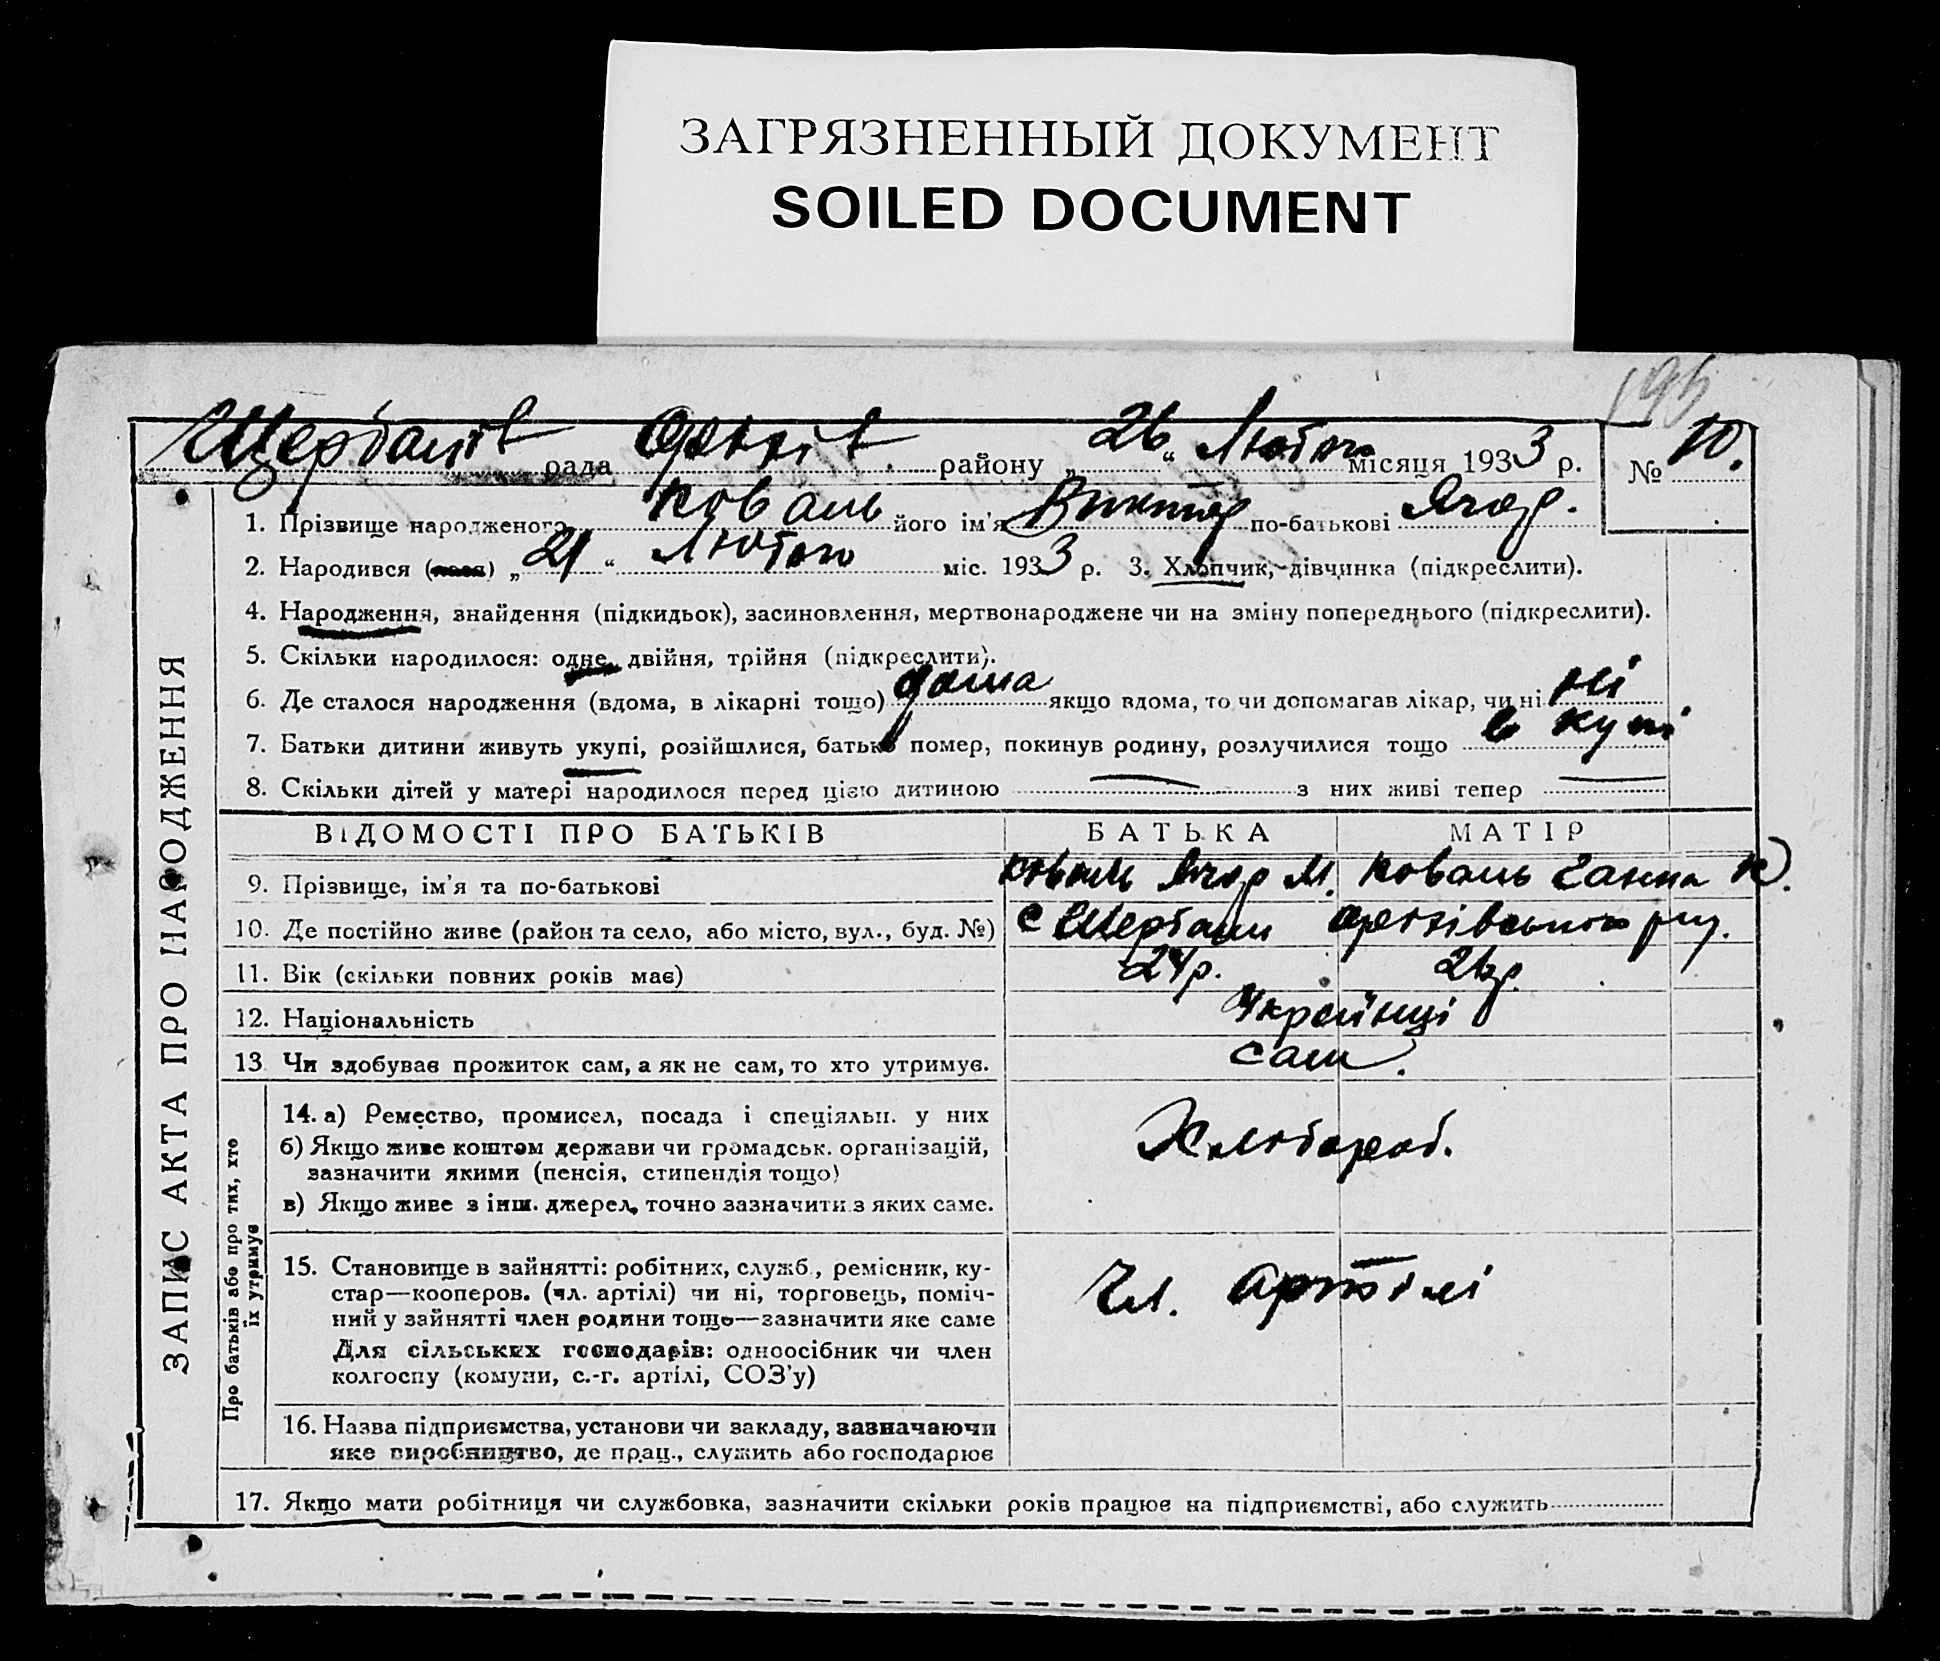 ЗАГРЯЗНЕННЫЙ ДОКУМЕНТ
SOILED DOCUMENT
195
Щербанів рада району „26“ Лютого місяця 1933 р. № 10.
1. Прізвище народженого Коваль його ім'я Виктор по-батькові Ягор.
2. Народився () „21“ Лютого міс. 1933 р. 3. Хлопчик, дівчинка (підкреслити).
4. Народження, знайдення (підкидьок), засиновлення, мертвонароджене чи на зміну попереднього (підкреслити).
5. Скільки народилося: одне, двійня, трійня (підкреслити).
6. Де сталося народження (вдома, в лікарні тощо) дома якщо вдома, то чи допомагав лікар, чи ні ні
7. Батьки дитини живуть укупі, розійшлися, батько помер, покинув родину, розлучилися тощо в купі
8. Скільки дітей у матері народилося перед цією дитиною — з них живі тепер —
ЗАПИС АКТА ПРО НАРОДЖЕННЯ
ВІДОМОСТІ ПРО БАТЬКІВ БАТЬКА МАТІР
9. Прізвище, ім'я та по-батькові Коваль Ягор М. Коваль Ганна К.
10. Де постійно живе (район та село, або місто, вул., буд. №) с Щербани
11. Вік (скільки повних років має) 24р. 26р.
12. Національність Українці
13 Чи здобуває прожиток сам, а як не сам, то хто утримує. сам.
Про батьків або про тих, хто їх утримує
14. а) Ремество, промисел, посада і спеціяльн. у них Хлібороб.
б) Якщо живе коштом держави чи громадськ. організацій,
зазначити якими (пенсія, стипендія тощо)
в) Якщо живе з інш. джерел, точно зазначити з яких саме.
15. Становище в зайнятті: робітник, служб., ремісник, ку-
стар—кооперов. (чл. артілі) чи ні, торговець, поміч- Чл. артілі
ний у зайнятті член родини тощо—зазначити яке саме
Для сільських господарів: одноосібник чи член
колгоспу (комуни, с.-г. артілі, СОЗ'у)
16. Назва підприємства, установи чи закладу, зазначаючи
яке виробництво, де прац., служить або господарює
17. Якщо мати робітниця чи службовка, зазначити скільки років працює на підприємстві, або служить